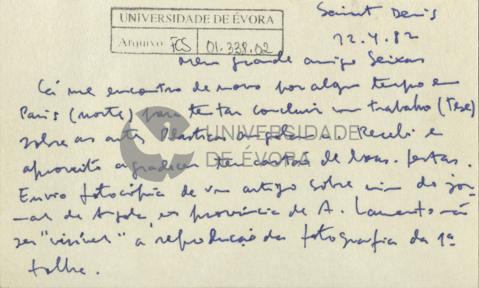 UNIVERSIDADE DE ÉVORA
Arquivo FCS 01.338.02
Saint Denis
22.4.82
Meu grande amigo Seixas
Cá me encontro de novo por algum tempo em
Paris (norte) para tentar concluir um trabalho (Tese)
sobre as artes Plásticas angolanas. Recebi e
aproveito agradecer teu cartão de boas-festas.
Envio fotocópia de um artigo sobre mim do jor-
nal de Angola, ex província de A. Lamento não
ser "visível" a reprodução da fotografia da 1ª
folha.
UNIVERSIDADE
DE ÉVORA